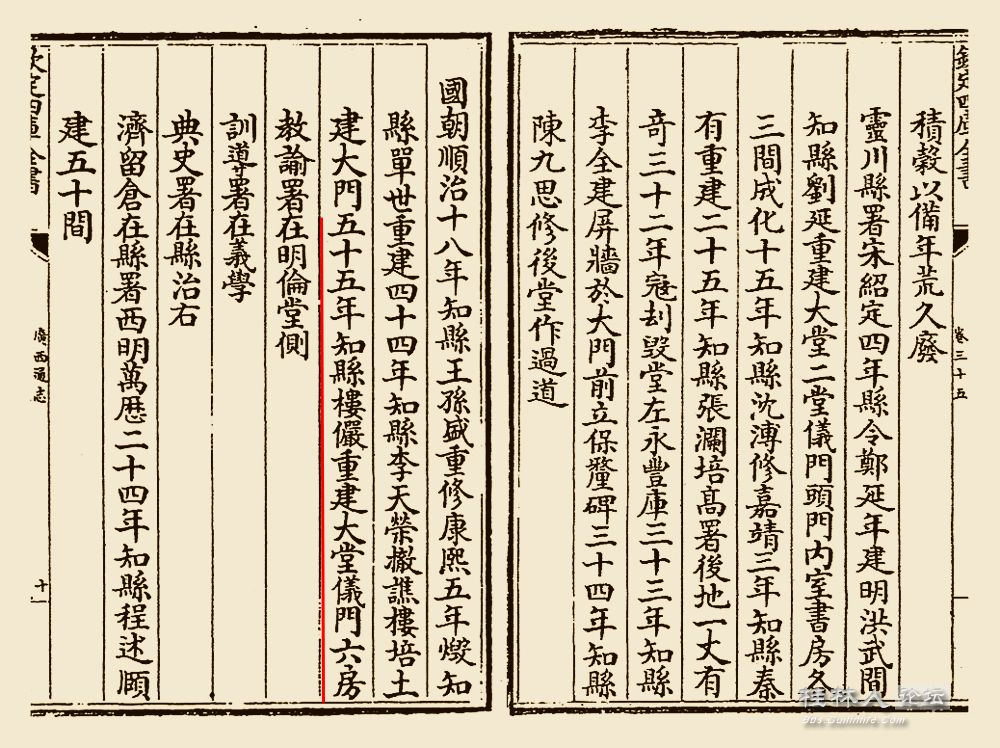 欽定四庫全書
卷三十五
積穀以備年荒久廢
靈川縣署宋紹定四年縣令鄭延年建明洪武間
知縣劉延重建大堂二堂儀門頭門内室書房久
三間成化十五年知縣沈溥修嘉靖三年知縣秦
有重建二十五年知縣張瀾培髙署後地一丈有
竒三十二年寇刦毀堂左永豐庫三十三年知縣
李全建屏牆於大門前立保釐碑三十四年知縣
陳九思修後堂作過道
國朝順治十八年知縣王孫盛重修康熙五年燬知
縣單世重建四十四年知縣李天榮撤譙樓培土
建大門五十五年知縣樓儼重建大堂儀門六房
教諭署在明倫堂側
訓導署在義學
典史署在縣治右
濟留倉在縣署西明萬厯二十四年知縣程述頤
建五十間
欽定四庫全書
廣西通志
十一
桂林人论坛
bbs.guilinlife.com